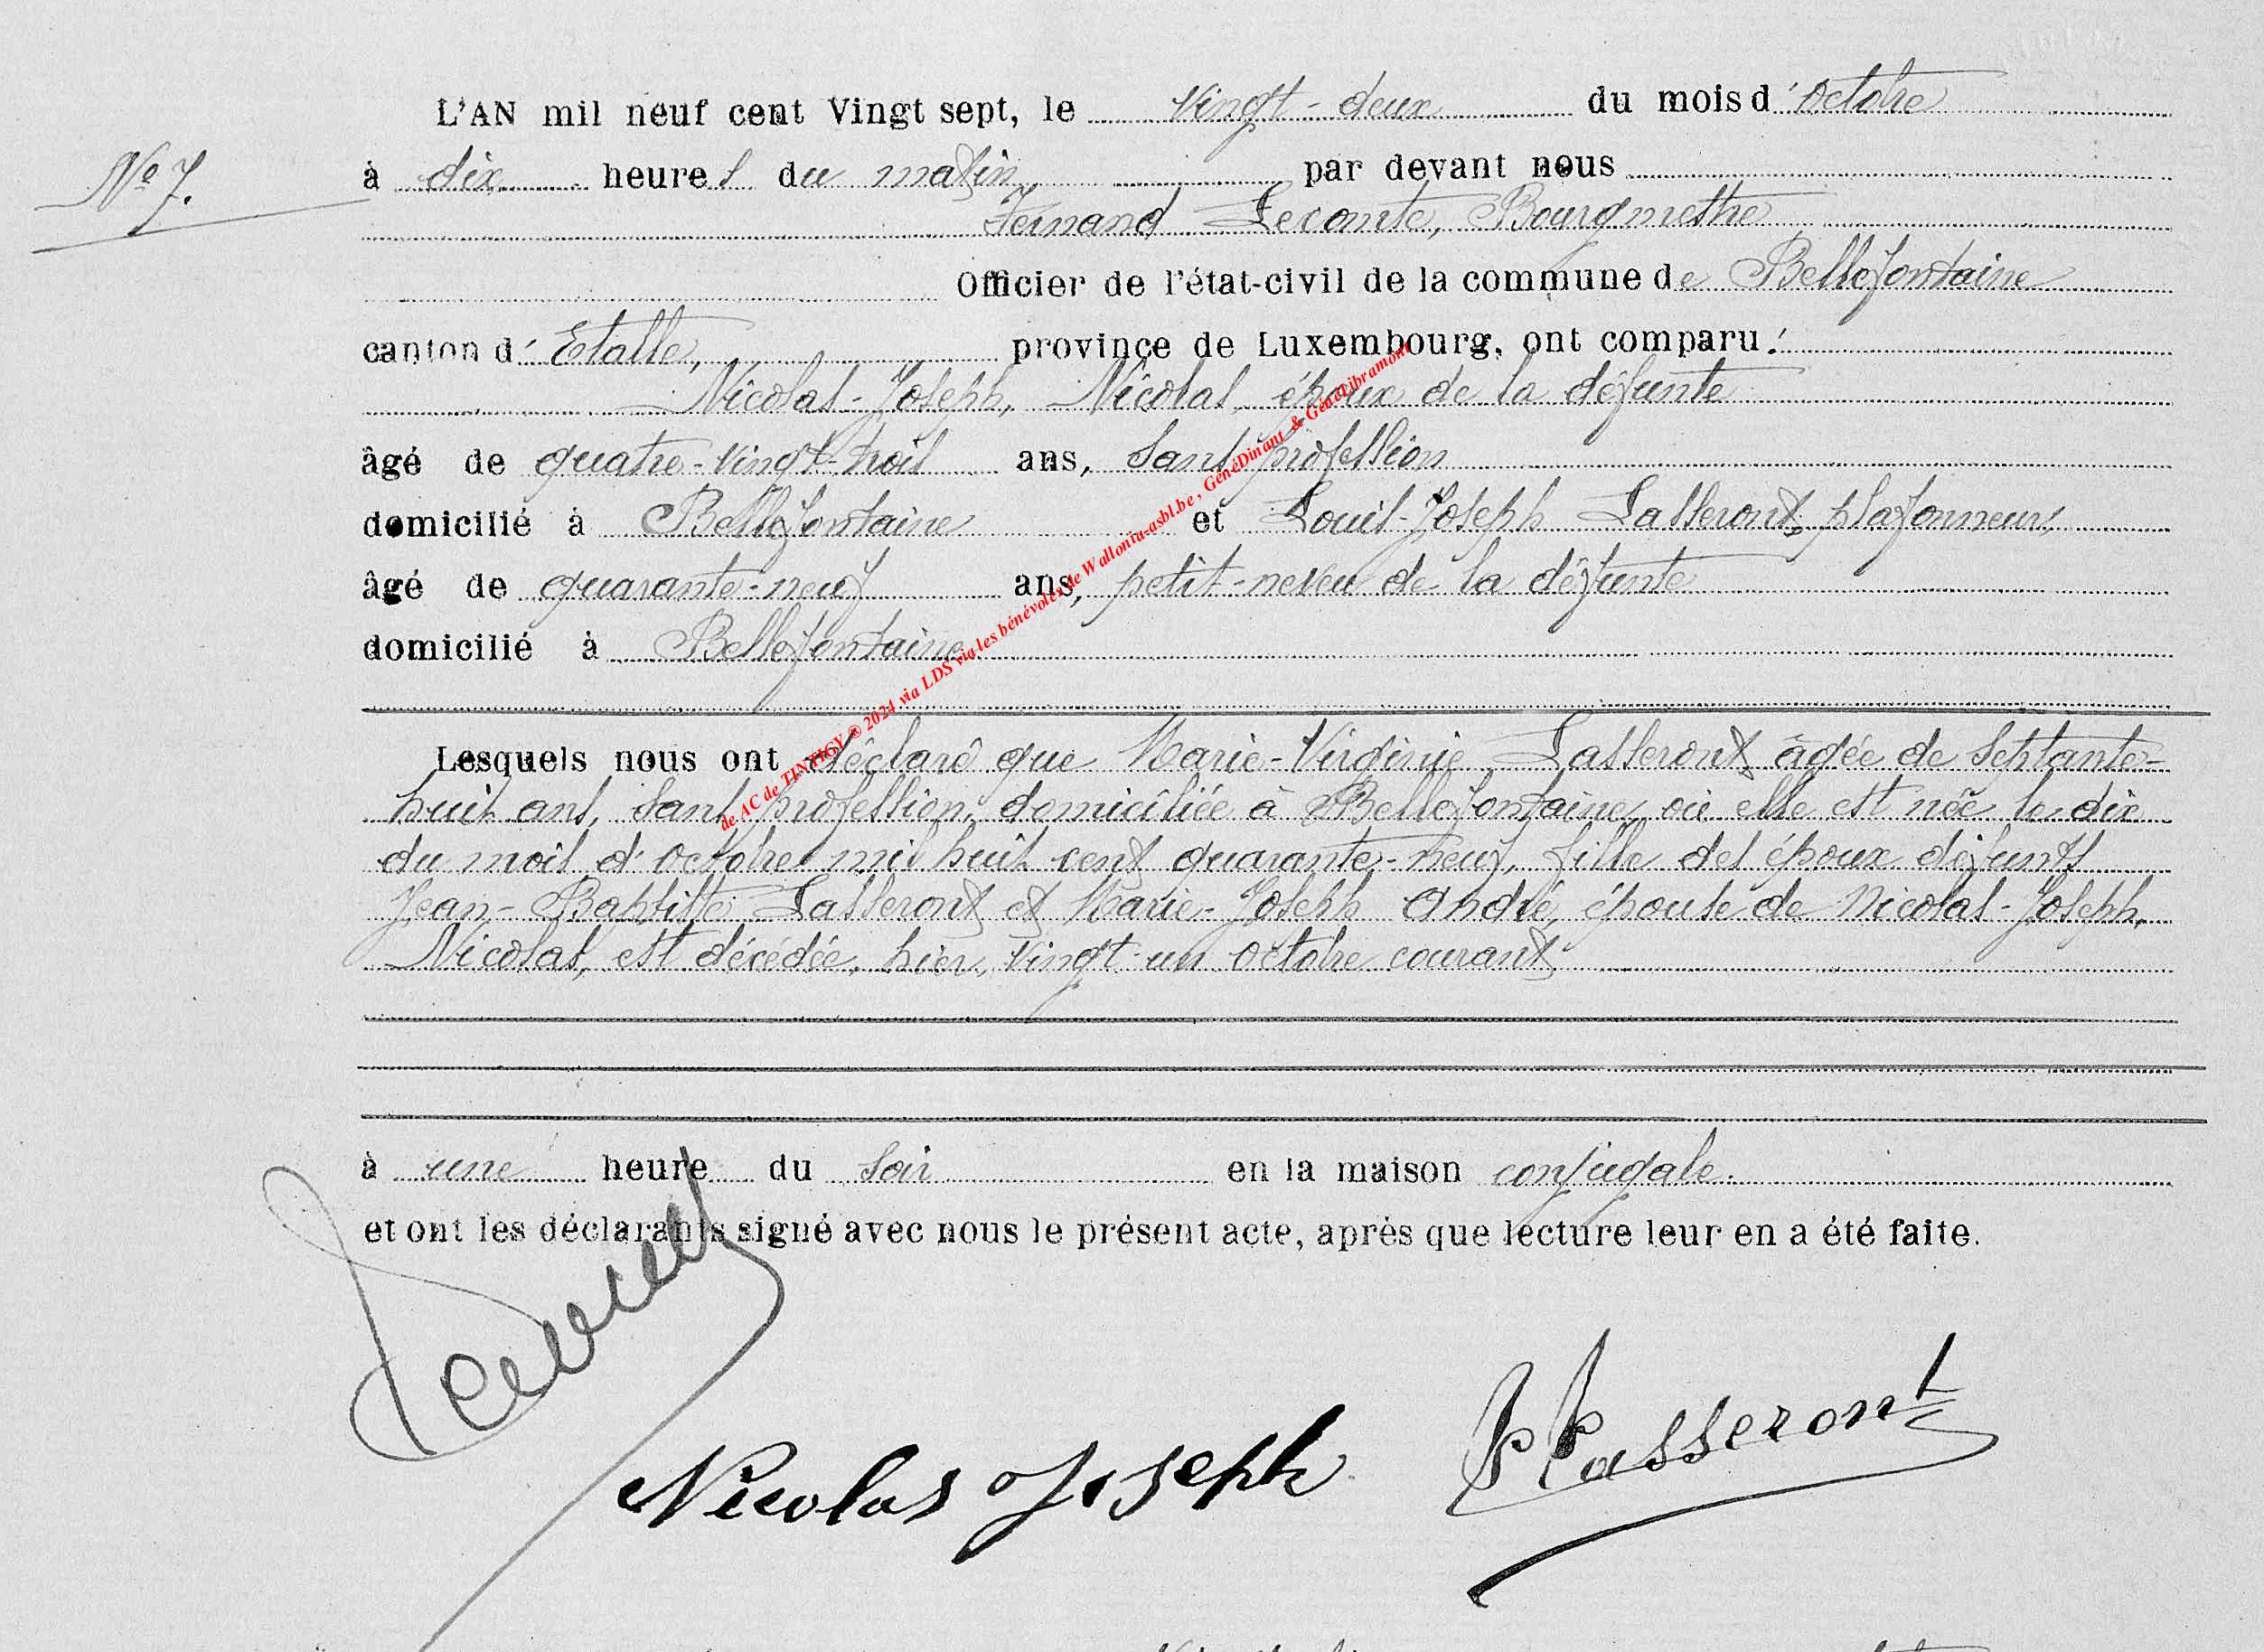 L'AN mil neuf cent Vingt sept, le vingt-deux du mois d'octobre
N° 7.
à dix heures du matin par devant nous
Fernand Lecomte, Bourgmestre
Officier de l'état-civil de la commune de Bellefontaine
canton d'Etalle, province de Luxembourg, ont comparu :
Nicolas-Joseph, Nicolas, époux de la défunte
âgé de quatre-vingt-trois ans, sans profession
domicilié à Bellefontaine et Louis-Joseph Lasseront, plafonneur,
âgé de quarante-neuf ans, petit-neveu de la défunte
domicilié à Bellefontaine
Lesquels nous ont déclaré que Marie-Virginie Lasseront, âgée de septante-
huit ans, sans profession, domiciliée à Bellefontaine, où elle est née le dix
du mois d'octobre mil huit cent quarante-neuf, fille des époux défunts
Jean-Baptiste Lasseront et Marie-Joseph André, épouse de Nicolas-Joseph,
Nicolas, est décédée, hier, vingt-un octobre courant
de AC de TINTIGY © 2024 via LDS via les bénévoles de Wallonia-asbl.be, GénéDinant & GénéLibramont
à une heure du soir en la maison conjugale.
et ont les déclarants signé avec nous le présent acte, après que lecture leur en a été faite.
Nicolas Joseph
Lasseront